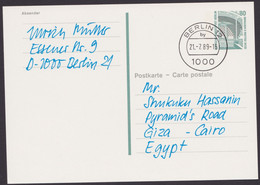 Absender
Moritz Müller
Essener Str. 9
D-1000 Berlin 21
BERLIN 12
hy
21.-7.89-16
1000
80
Postkarte - Carte postale
Mr.
Shukuku Hassanin
Pyramid's Road
Giza - Cairo
Egypt